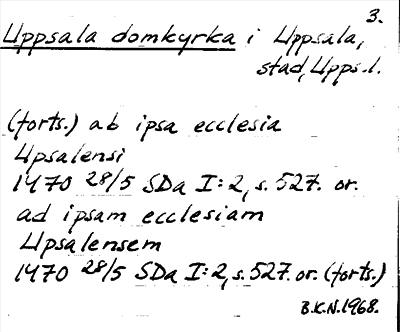 3.
Uppsala domkyrka i Uppsala,
stad, Upps.l.
(forts.) ab ipsa ecclesia
Upsalensi
1470 28/5 SDa I:2, s. 527. or.
ad ipsam ecclesiam
Upsalensem
1470 28/5 SDa I:2, s. 527. or. (forts.)
B.K.N. 1968.